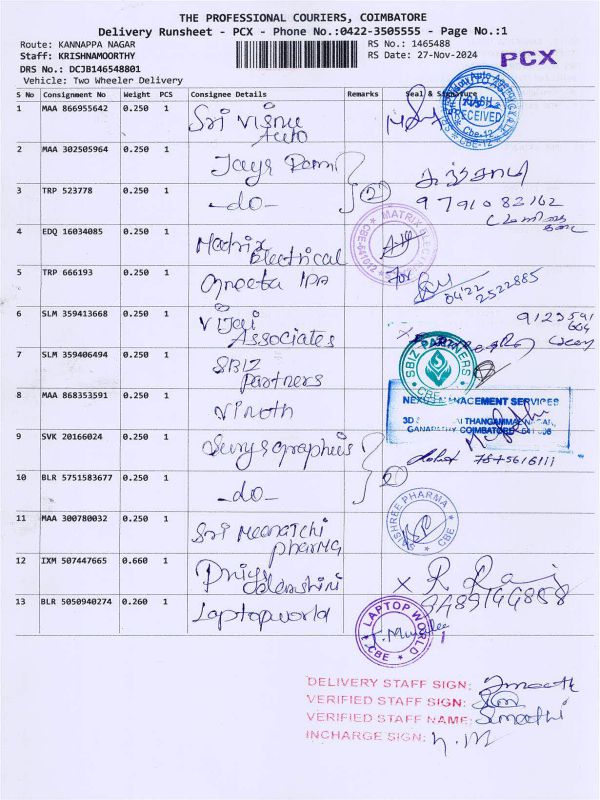 THE PROFESSIONAL COURIERS, COIMBATORE
Delivery Runsheet - PCX - Phone No.:0422-3505555 - Page No.:1
Route: KANNAPPA NAGAR
RS No.: 1465488
Staff: KRISHNAMOORTHY
RS Date: 27-Nov-2024
PCX
DRS No.: DCJB146548801
Vehicle: Two Wheeler Delivery
S No Consignment No Weight PCS Consignee Details Remarks Seal & Signature
1 MAA 866955642 0.250 1 Sri Visnu Auto
CASH RECEIVED
CBE-12
2 MAA 302505964 0.250 1 Jaya
3 TRP 523778 0.250 1 -do- 2
9791082162
4 EDQ 16034085 0.250 1 Matrix Electrical
MATRIX
CBE-641012
5 TRP 666193 0.250 1
For
0422 2522885
6 SLM 359413668 0.250 1 Vijai Associates
7 SLM 359406494 0.250 1 SBIZ Partners
SBIZ PARTNERS
CBE
8 MAA 868353591 0.250 1 Vinoth
NEXUS MANAGEMENT SERVICES
THANGAMMAL NAGAR,
GANAPATHY COIMBATORE
9 SVK 20166024 0.250 1 Surya graphics
10 BLR 5751583677 0.250 1 -do-
11 MAA 300780032 0.250 1 Sri Meenatchi pharma
SHREE PHARMA
CBE
12 IXM 507447665 0.660 1 Priya
x R Raj
13 BLR 5050940274 0.260 1 Laptopworld
LAPTOP WORLD
CBE
DELIVERY STAFF SIGN:
VERIFIED STAFF SIGN:
VERIFIED STAFF NAME: Sumathi
INCHARGE SIGN: